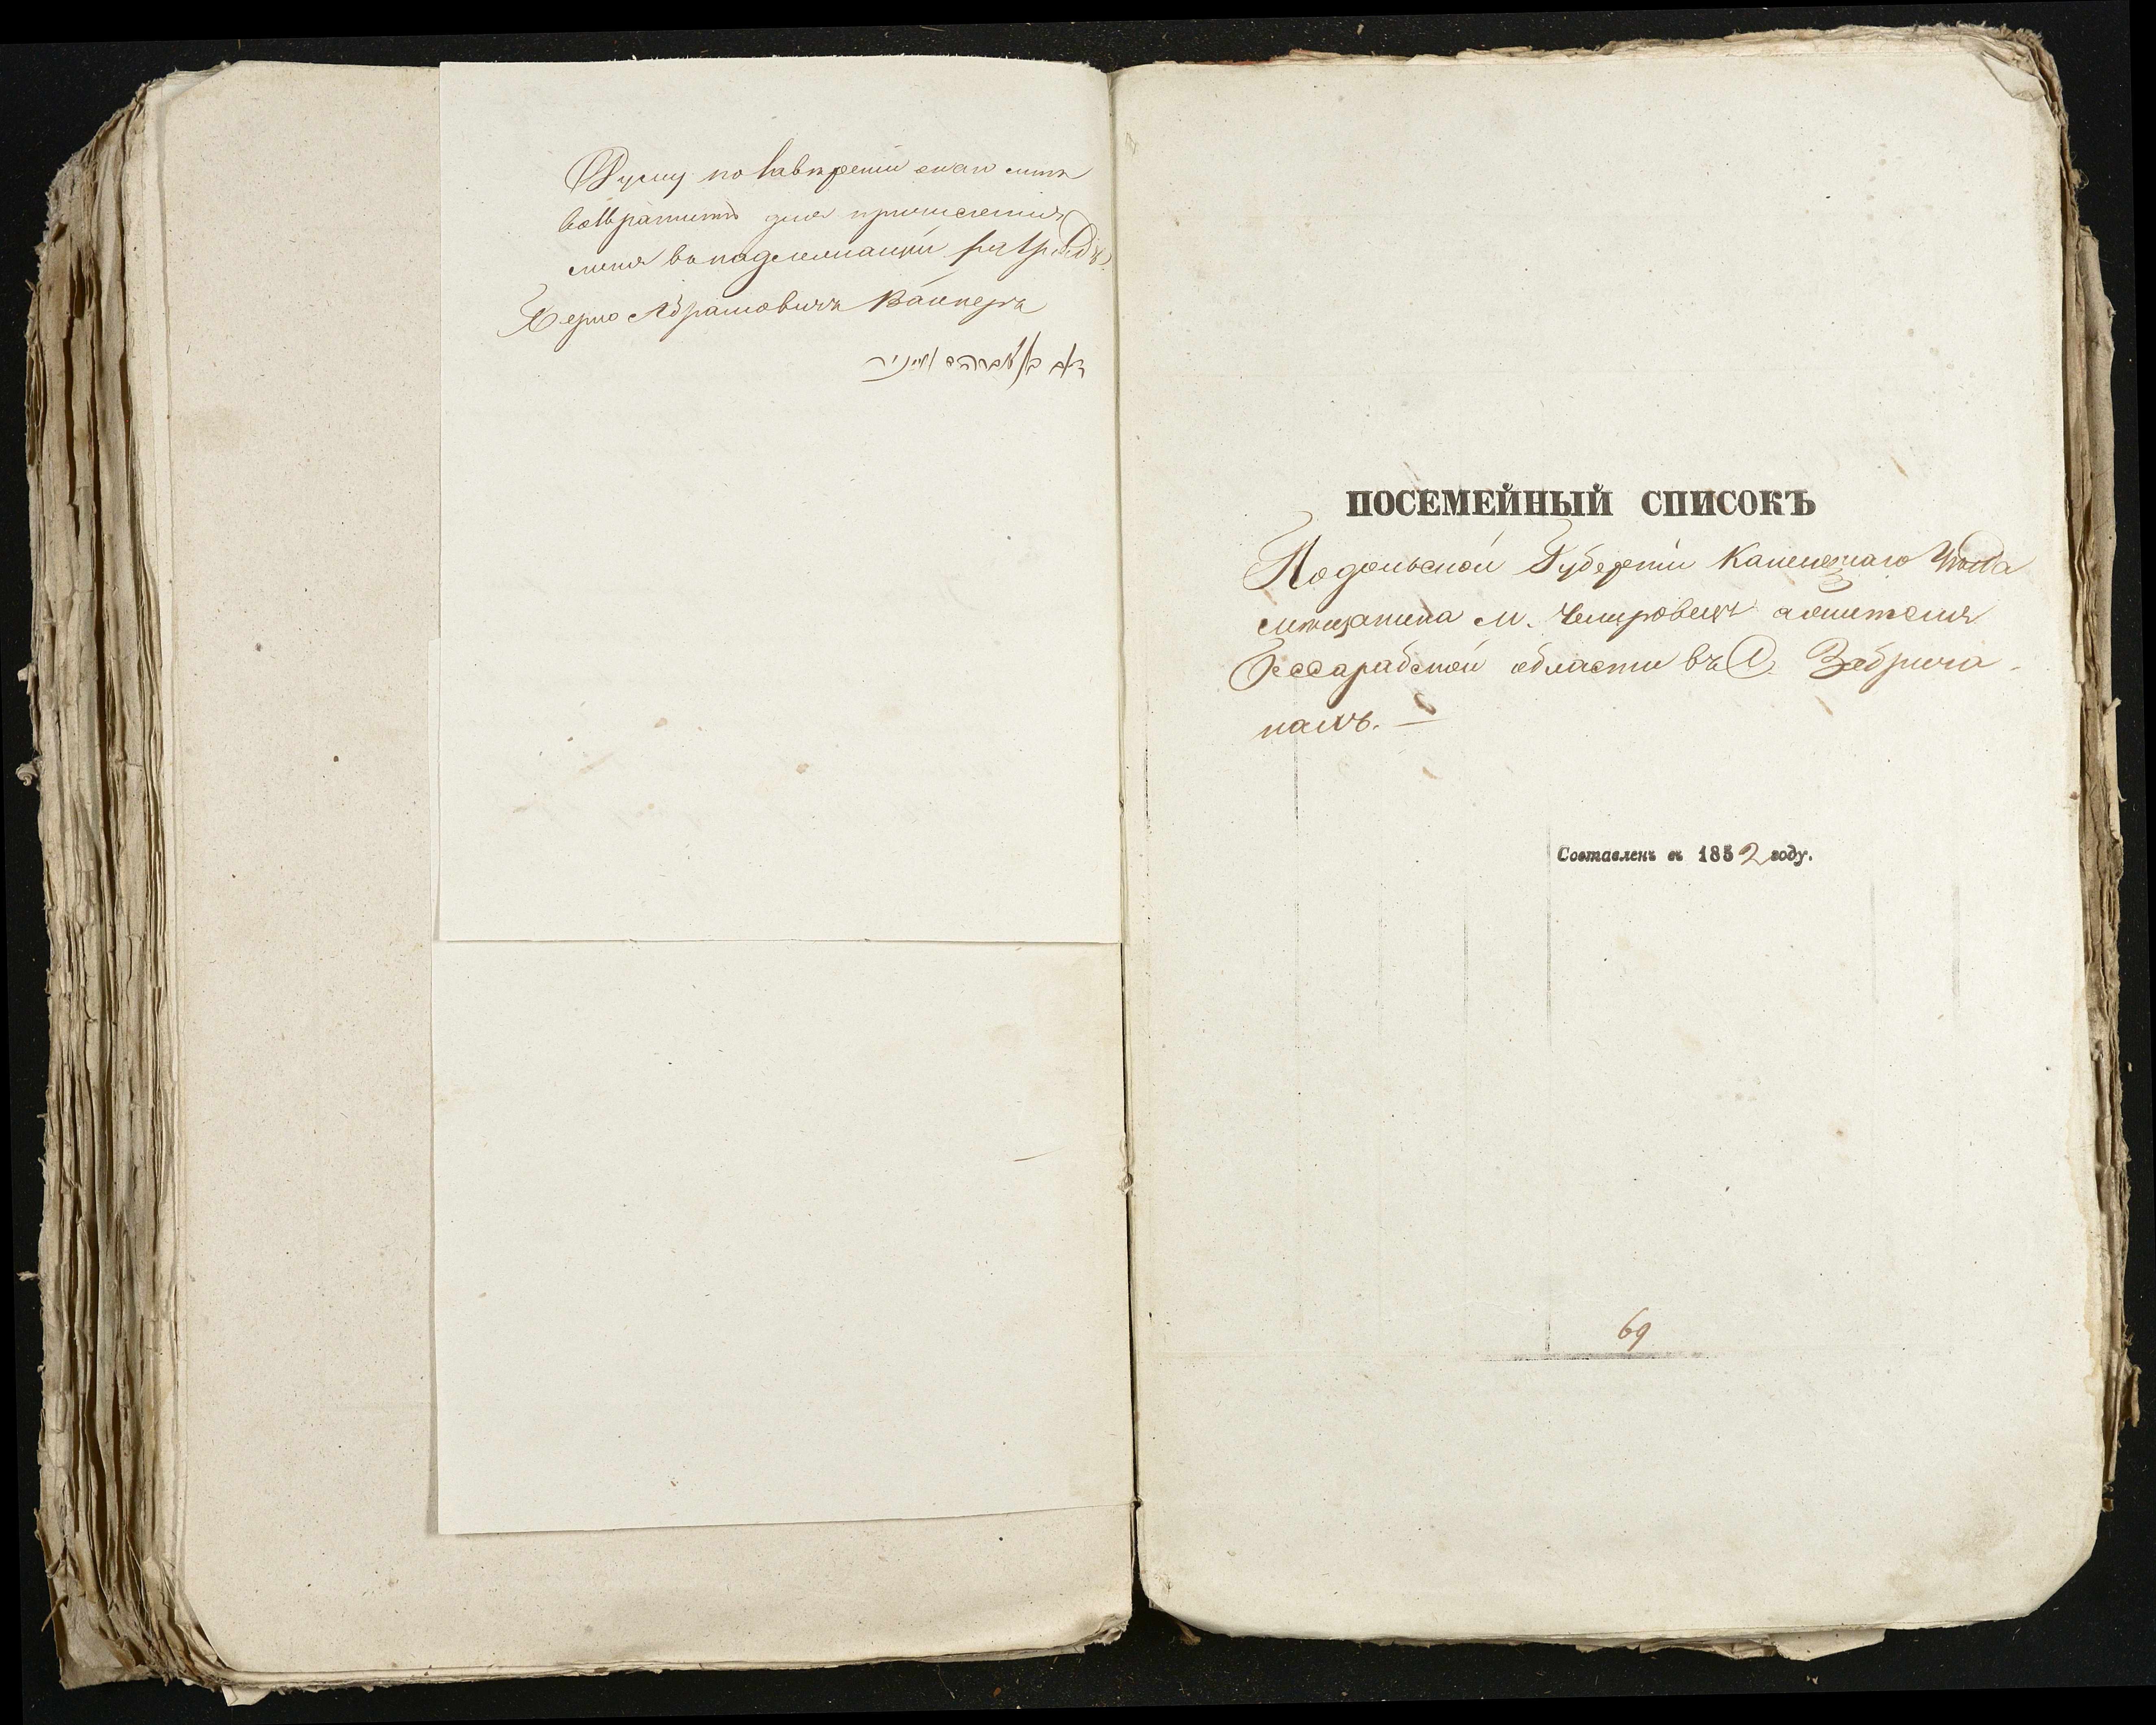 Думу по заверении оная мнѣ
возвратить для причисления
меня въ подлежащій разрядъ
Хермо Абрамовичъ Вайнеръ
אברהם ווייניר
ПОСЕМЕЙНЫЙ СПИСОКЪ
Подольской Губерніи Каменецкаго Уѣзда
мѣщанина м. Чемировецъ жителя
Бессарабской области въ С. Забрича-
нахъ.
Составленъ въ 1852 году.
69